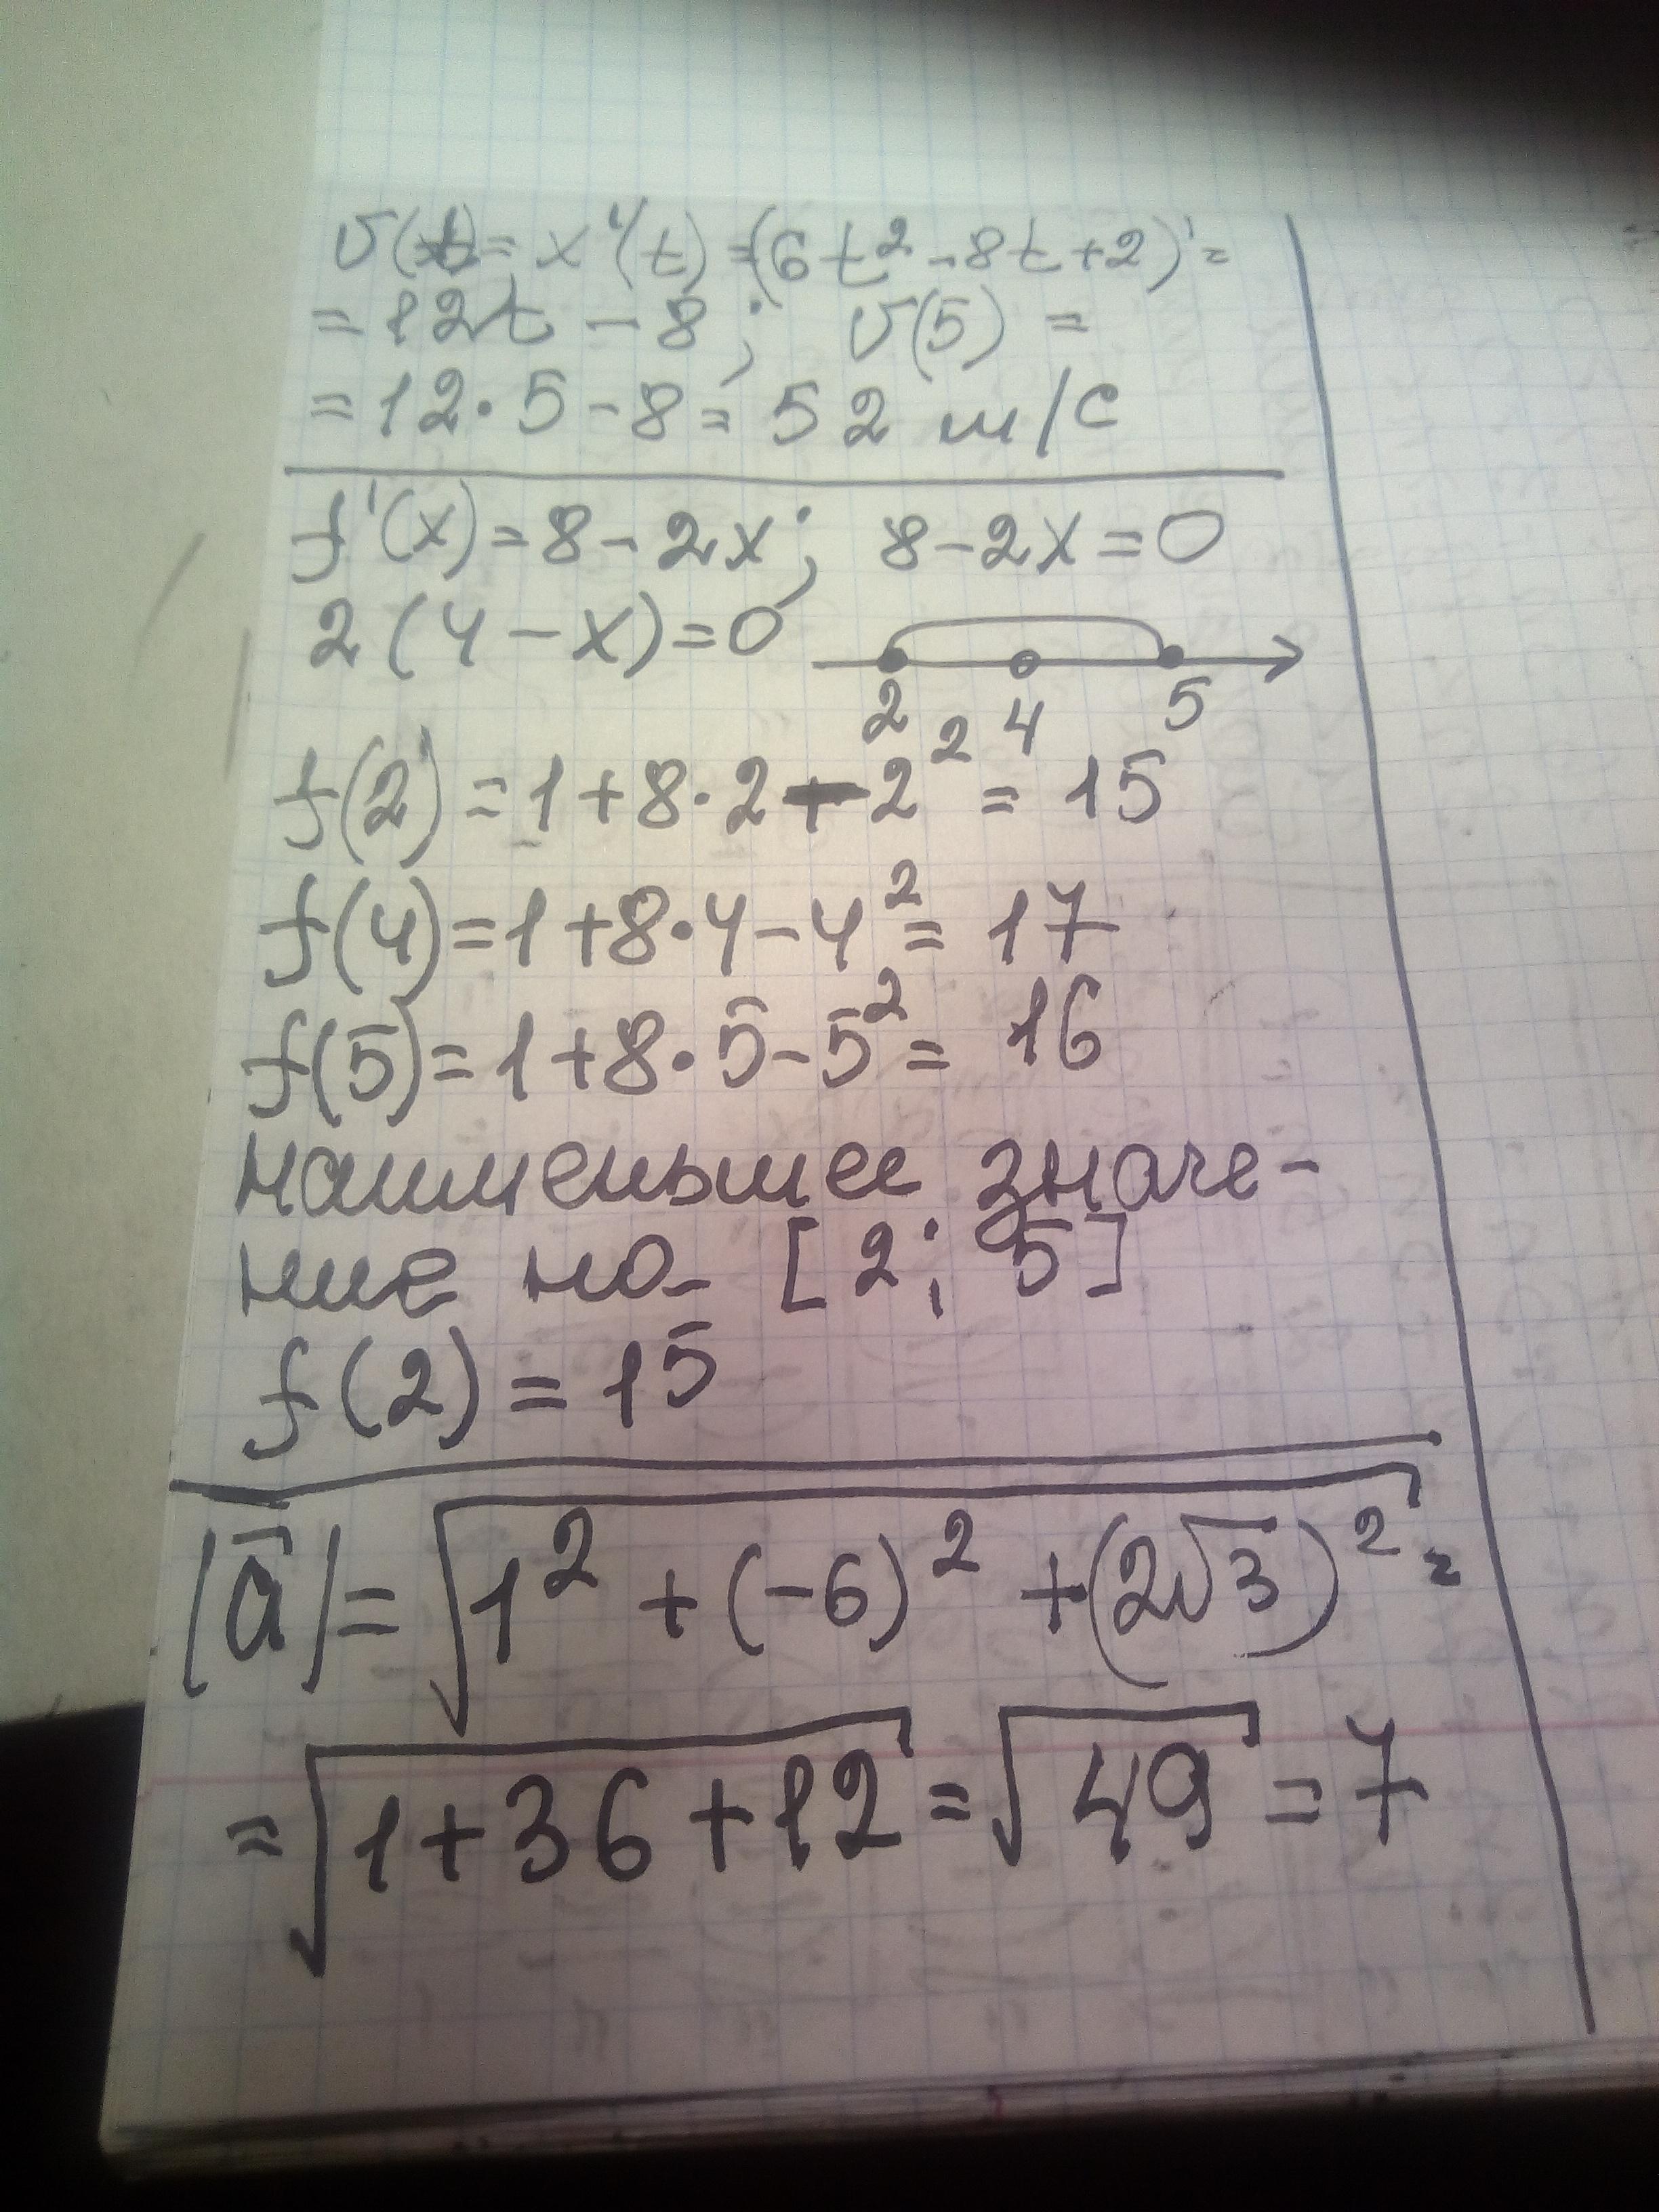 v(t) = x'(t) = (6t² - 8t + 2)' =
= 12t - 8; v(5) =
= 12·5 - 8 = 52 м/с
f'(x) = 8 - 2x; 8 - 2x = 0
2(4 - x) = 0
2 4 5
f(2) = 1 + 8·2 - 2² = 15
f(4) = 1 + 8·4 - 4² = 17
f(5) = 1 + 8·5 - 5² = 16
наименьшее значе-
ние на [2; 5]
f(2) = 15
|a̅| = √(1² + (-6)² + (2√3)²) =
= √(1 + 36 + 12) = √49 = 7